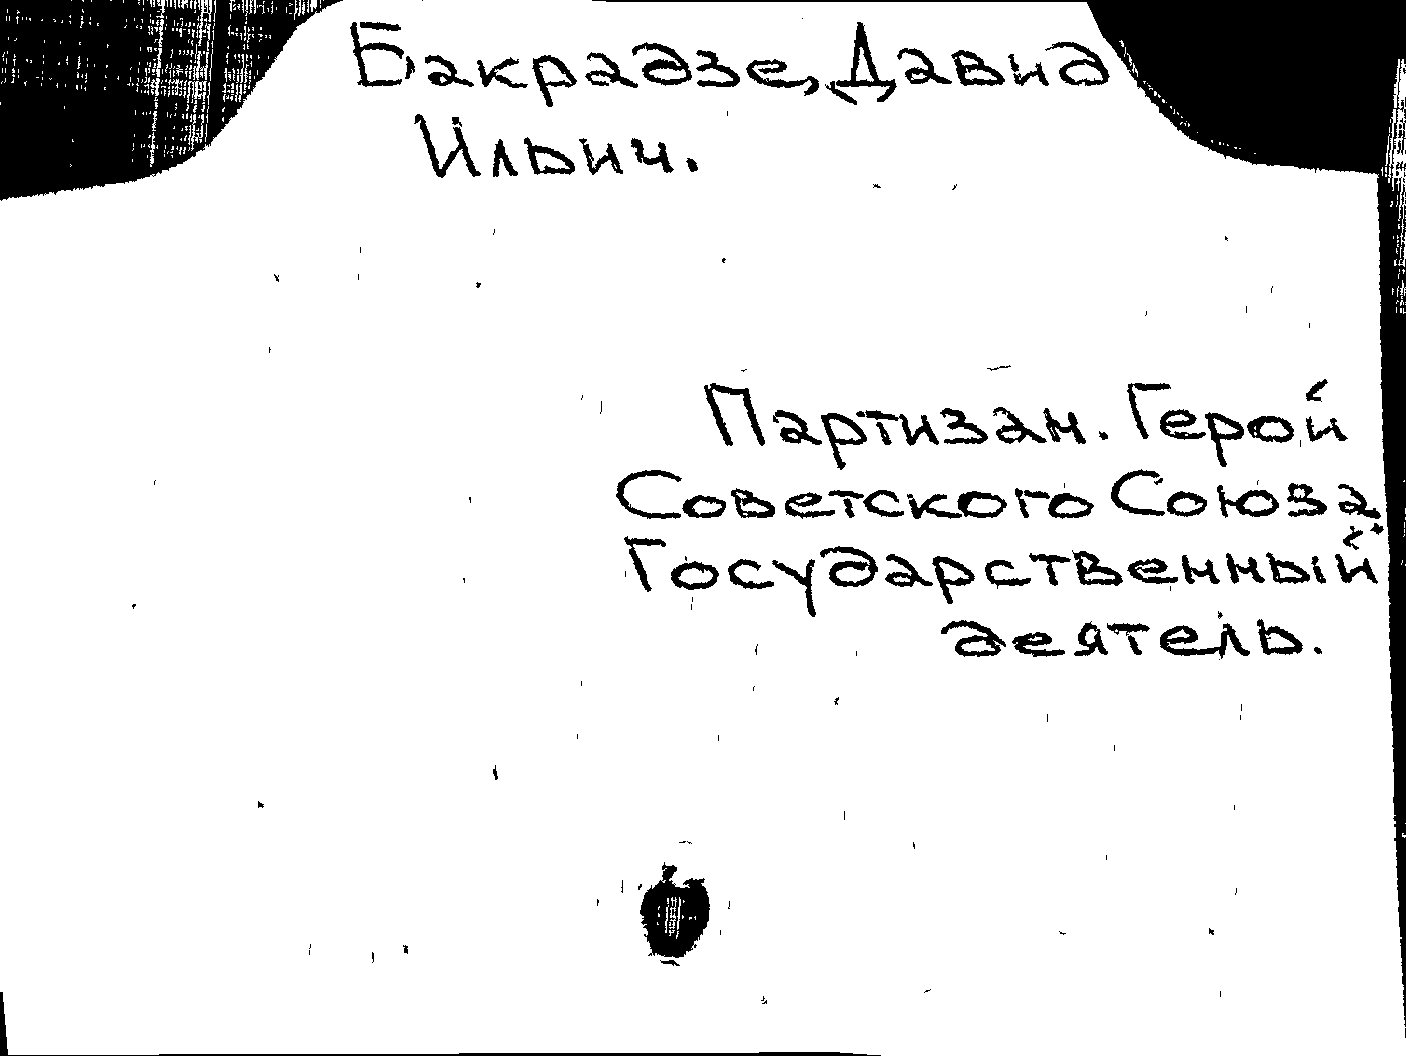 Бакрадзе, Давид
Ильич.
Партизан. Герой
Советского Союза.
Государственный
деятель.